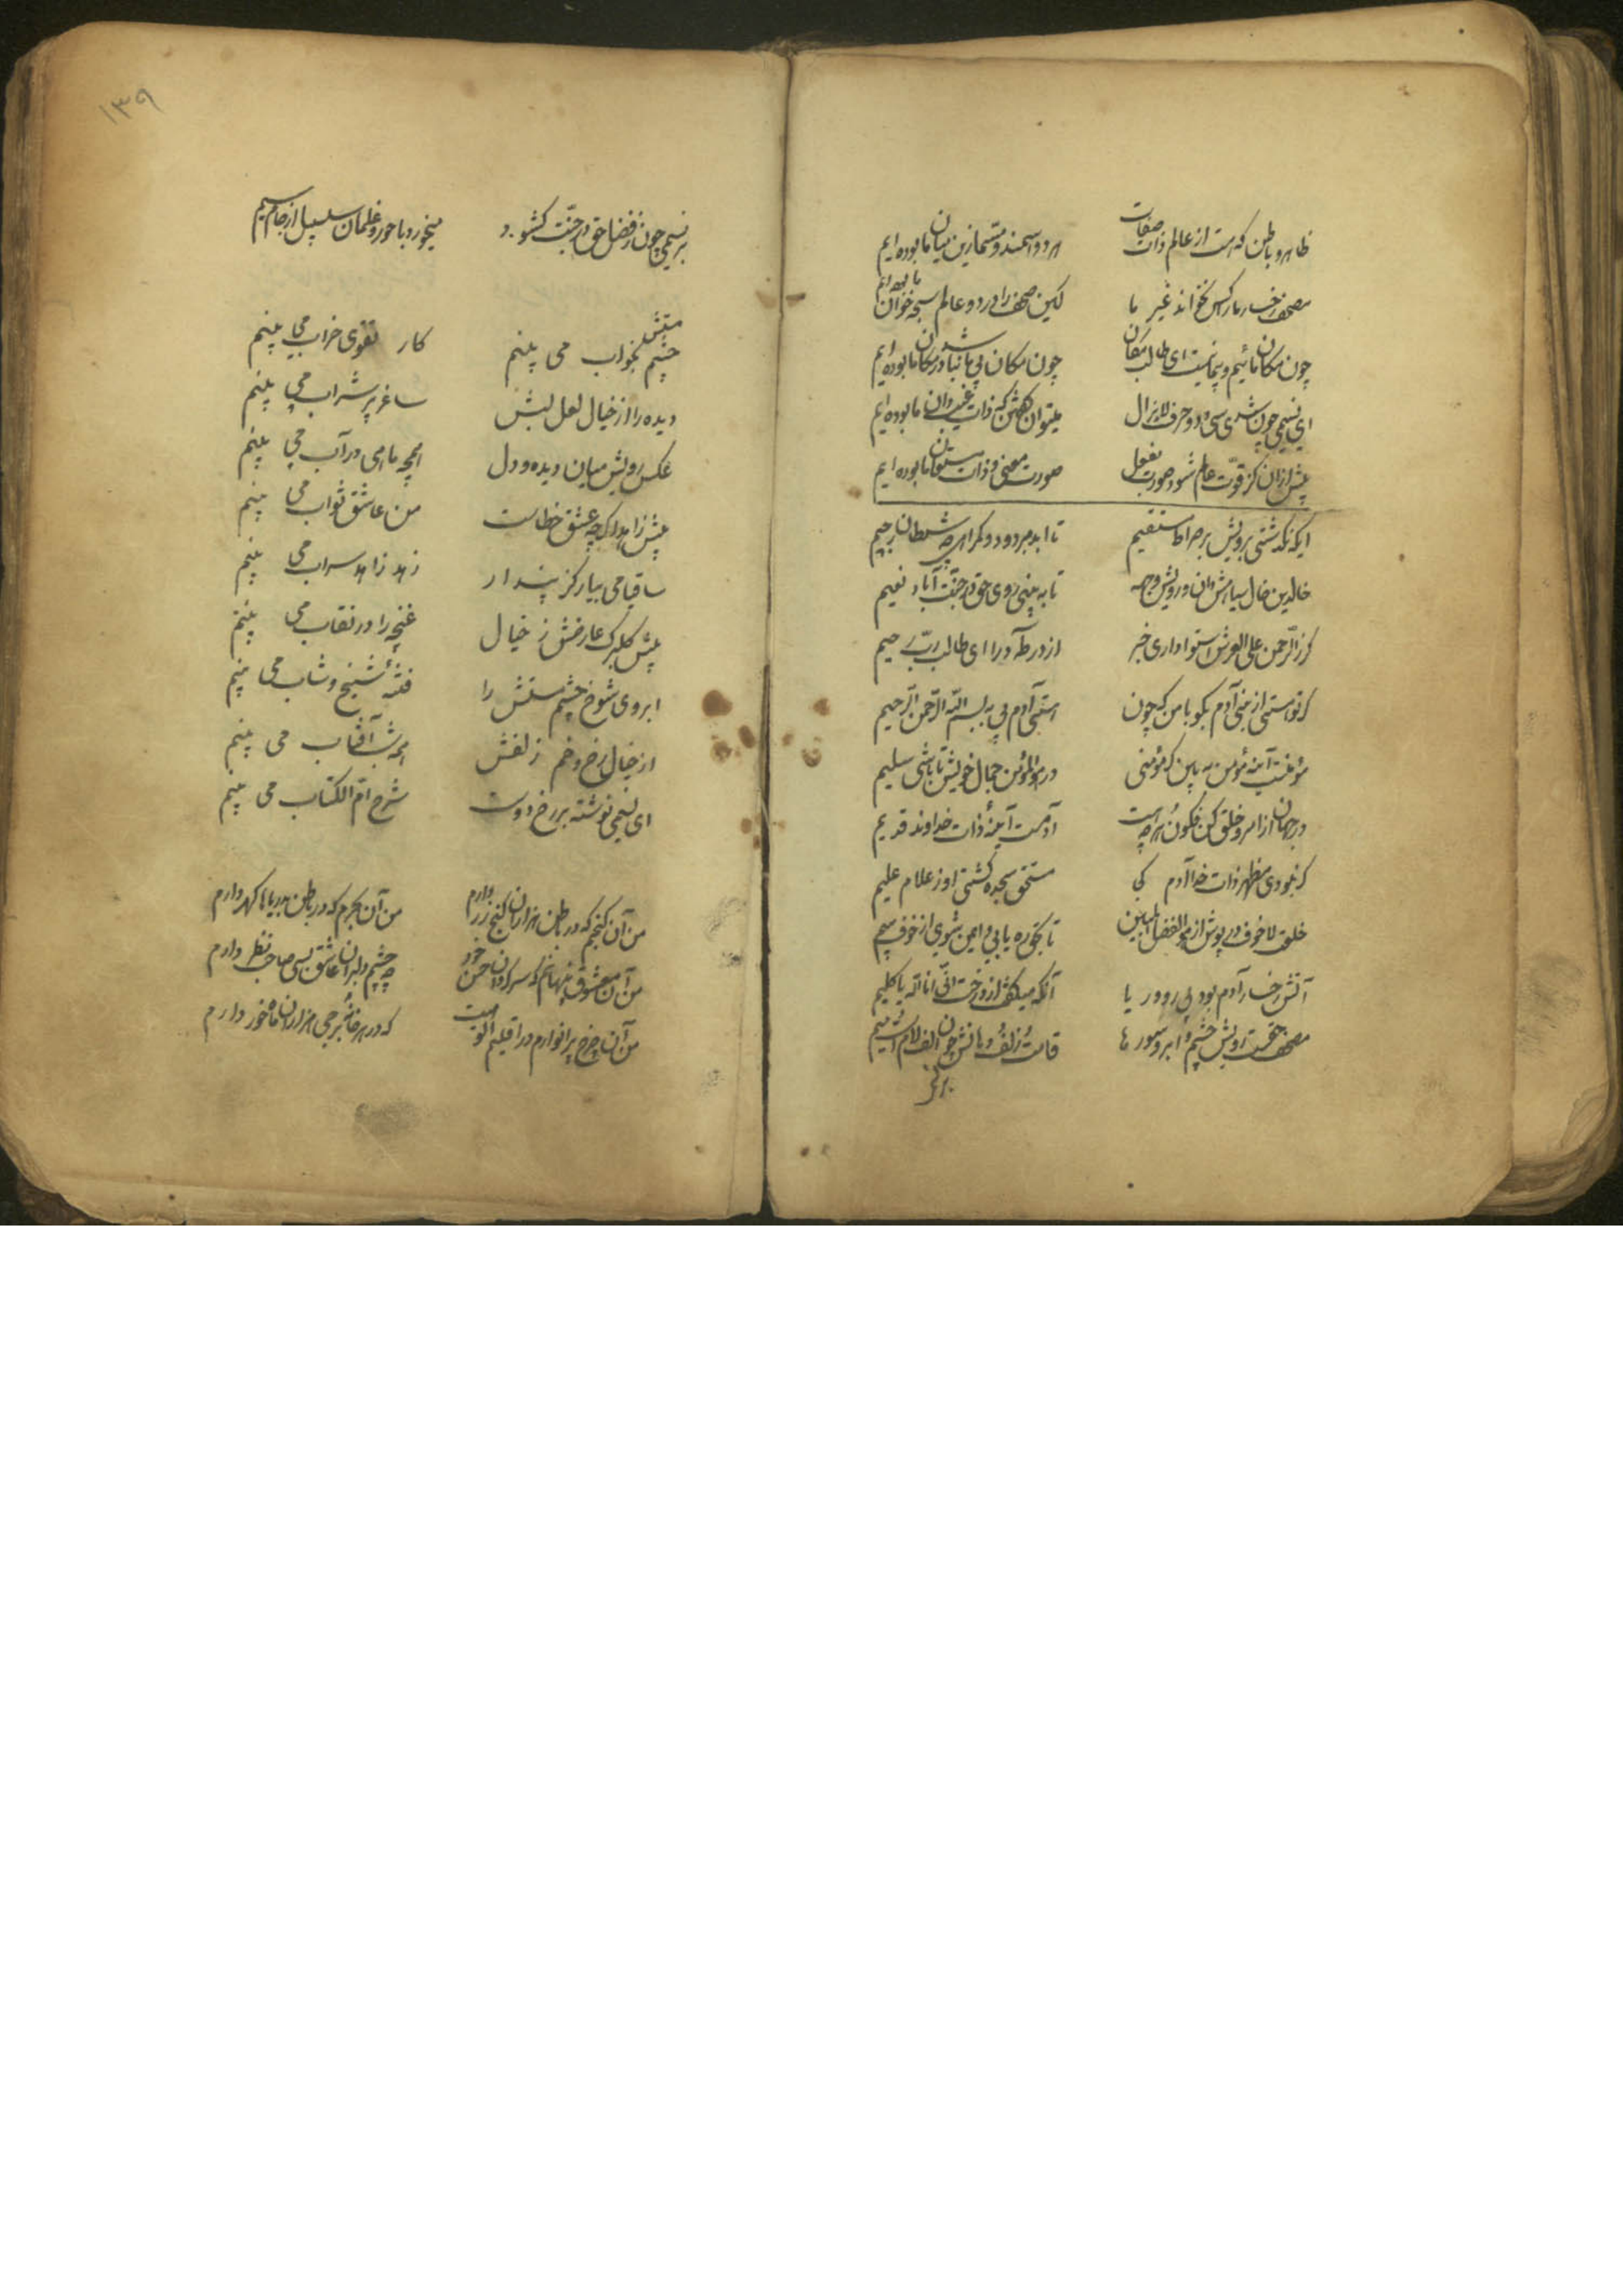 ظاهر و باطن که هست از عالم ذات صفات هر دو اسمند و مسما زین میان ما بوده ایم
مصحف رخسار ما را کس نخواند غیر ما لیکن مصحف را در دو عالم سبحه خوان ما بوده ایم
چون مکان مائیم و بی ما نیست ای طالب مکان چون مکان بی ما نباشد در مکان ما بوده ایم
ای نسیمی چون شدی سی و دو حرف لایزال میتوان گفتن که ذات غیب دان ما بوده ایم
پیش ازان کز قوت عالم شود صورت بفعل صورت معنی و ذات مستعان ما بوده ایم
ایکه نگذشتی برویش بر صراط مستقیم تا ابد مردود و گمراهی چه شیطان رجیم
خالدین خال سیاهش دان و رویش وجهه تا به بینی روی حق در جنت آباد نعیم
گر ز الرحمن علی العرش استوا داری خبر از در طه درا ای طالب رب رحیم
گر تو هستی از بنی آدم بگو با من که چون هستی آدم بی به بسم الله الرحمن الرحیم
مؤمنست آینه مؤمن به بین که مؤمنی در هو المؤمن جمال خویش تا باشی سلیم
در جهان از امر و خلق کن فکون هر چه هست آدمست آینه ذات خداوند قدیم
گر نبودی مظهر ذات خدا آدم کی مستحق سجده گشتی او ز علام علیم
خلعت لا خوف در پوش از هو الفضل المبین تا بحق ره یابی و ایمن شوی از خوف و بیم
آتش رخسار آدم بود بی رو و ریا آنکه میگفت از درخت انی انا الله یا کلیم
مصحف حقست رویش چشم و ابرو سورها قامت و زلف و دهانش چون الف لام است و میم
بر نسیمی
۱۳۹
بر نسیمی چون ز فضل حق در جنت گشود میخورد با حور و غلمان سلسبیل از جام سیم
چشم مستش بخواب می بینم کار تقوی خراب می بینم
دیده را از خیال لعل لبش ساغر پر شراب می بینم
عکس رویش میان دیده و دل همچه ماهی در آب می بینم
پیش زاهد اگر چه عشق خطاست من عاشق ثواب می بینم
ساقیا می بیار کز پندار زهد زاهد سراب می بینم
پیش گلبرگ عارضش ز خیال غنچه را در نقاب می بینم
ابروی شوخ چشم مستش را فتنه شیخ و شاب می بینم
از خیال رخ و خم زلفش همه شب آفتاب می بینم
ای نسیمی نوشته بر رخ دوست شرح ام الکتاب می بینم
من آن گنجم که در باطن هزاران گنج زر دارم من آن بحرم که در باطن دریاها گهر دارم
من آن معشوق پنهانم که سرگردان حسن خود چه چشم دلبران عاشق بسی صاحب نظر دارم
من آن چرخ پر انوارم در اقلیم الوهیت که در هر خانه برجی هزاران ماه و خور دارم